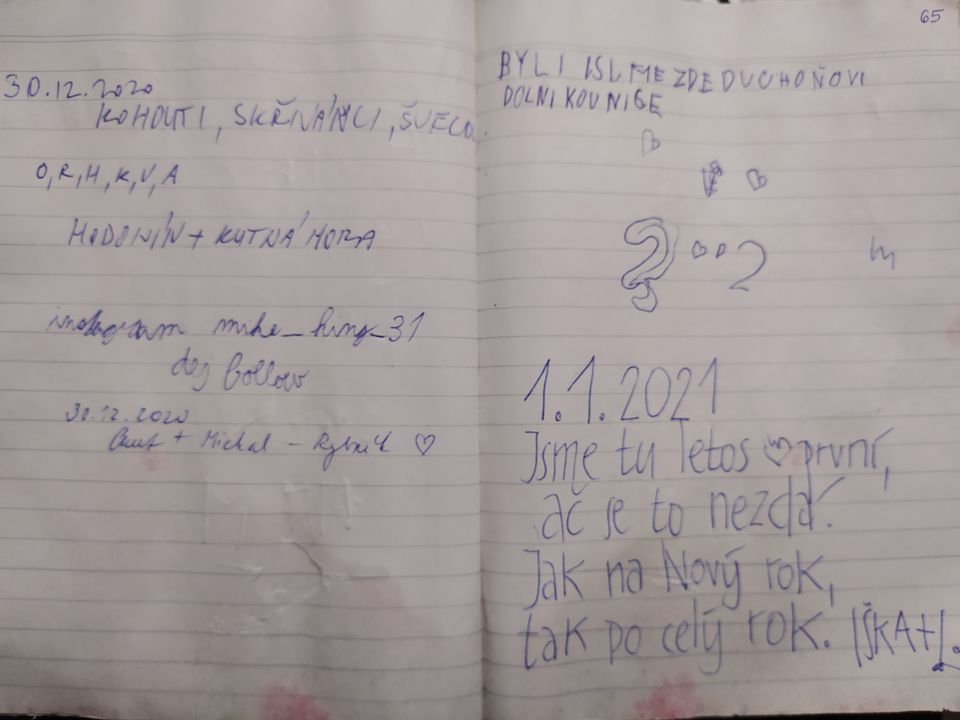 30.12.2020
KOHOUTI, SKŘIVÁNCI, ŠVECO
O, R, H, K, V, A
HODONÍN + KUTNÁ HORA
instagram mike_king_31
dej follow
30.12.2020
+ Michal - Rybník ♡
65
BYLI JSME ZDE DUCHOŇOVI
DOLNI KOUNICE
2
1.1.2021
Jsme tu letos ♡ první,
ač se to nezdá.
Jak na Nový rok,
tak po celý rok.